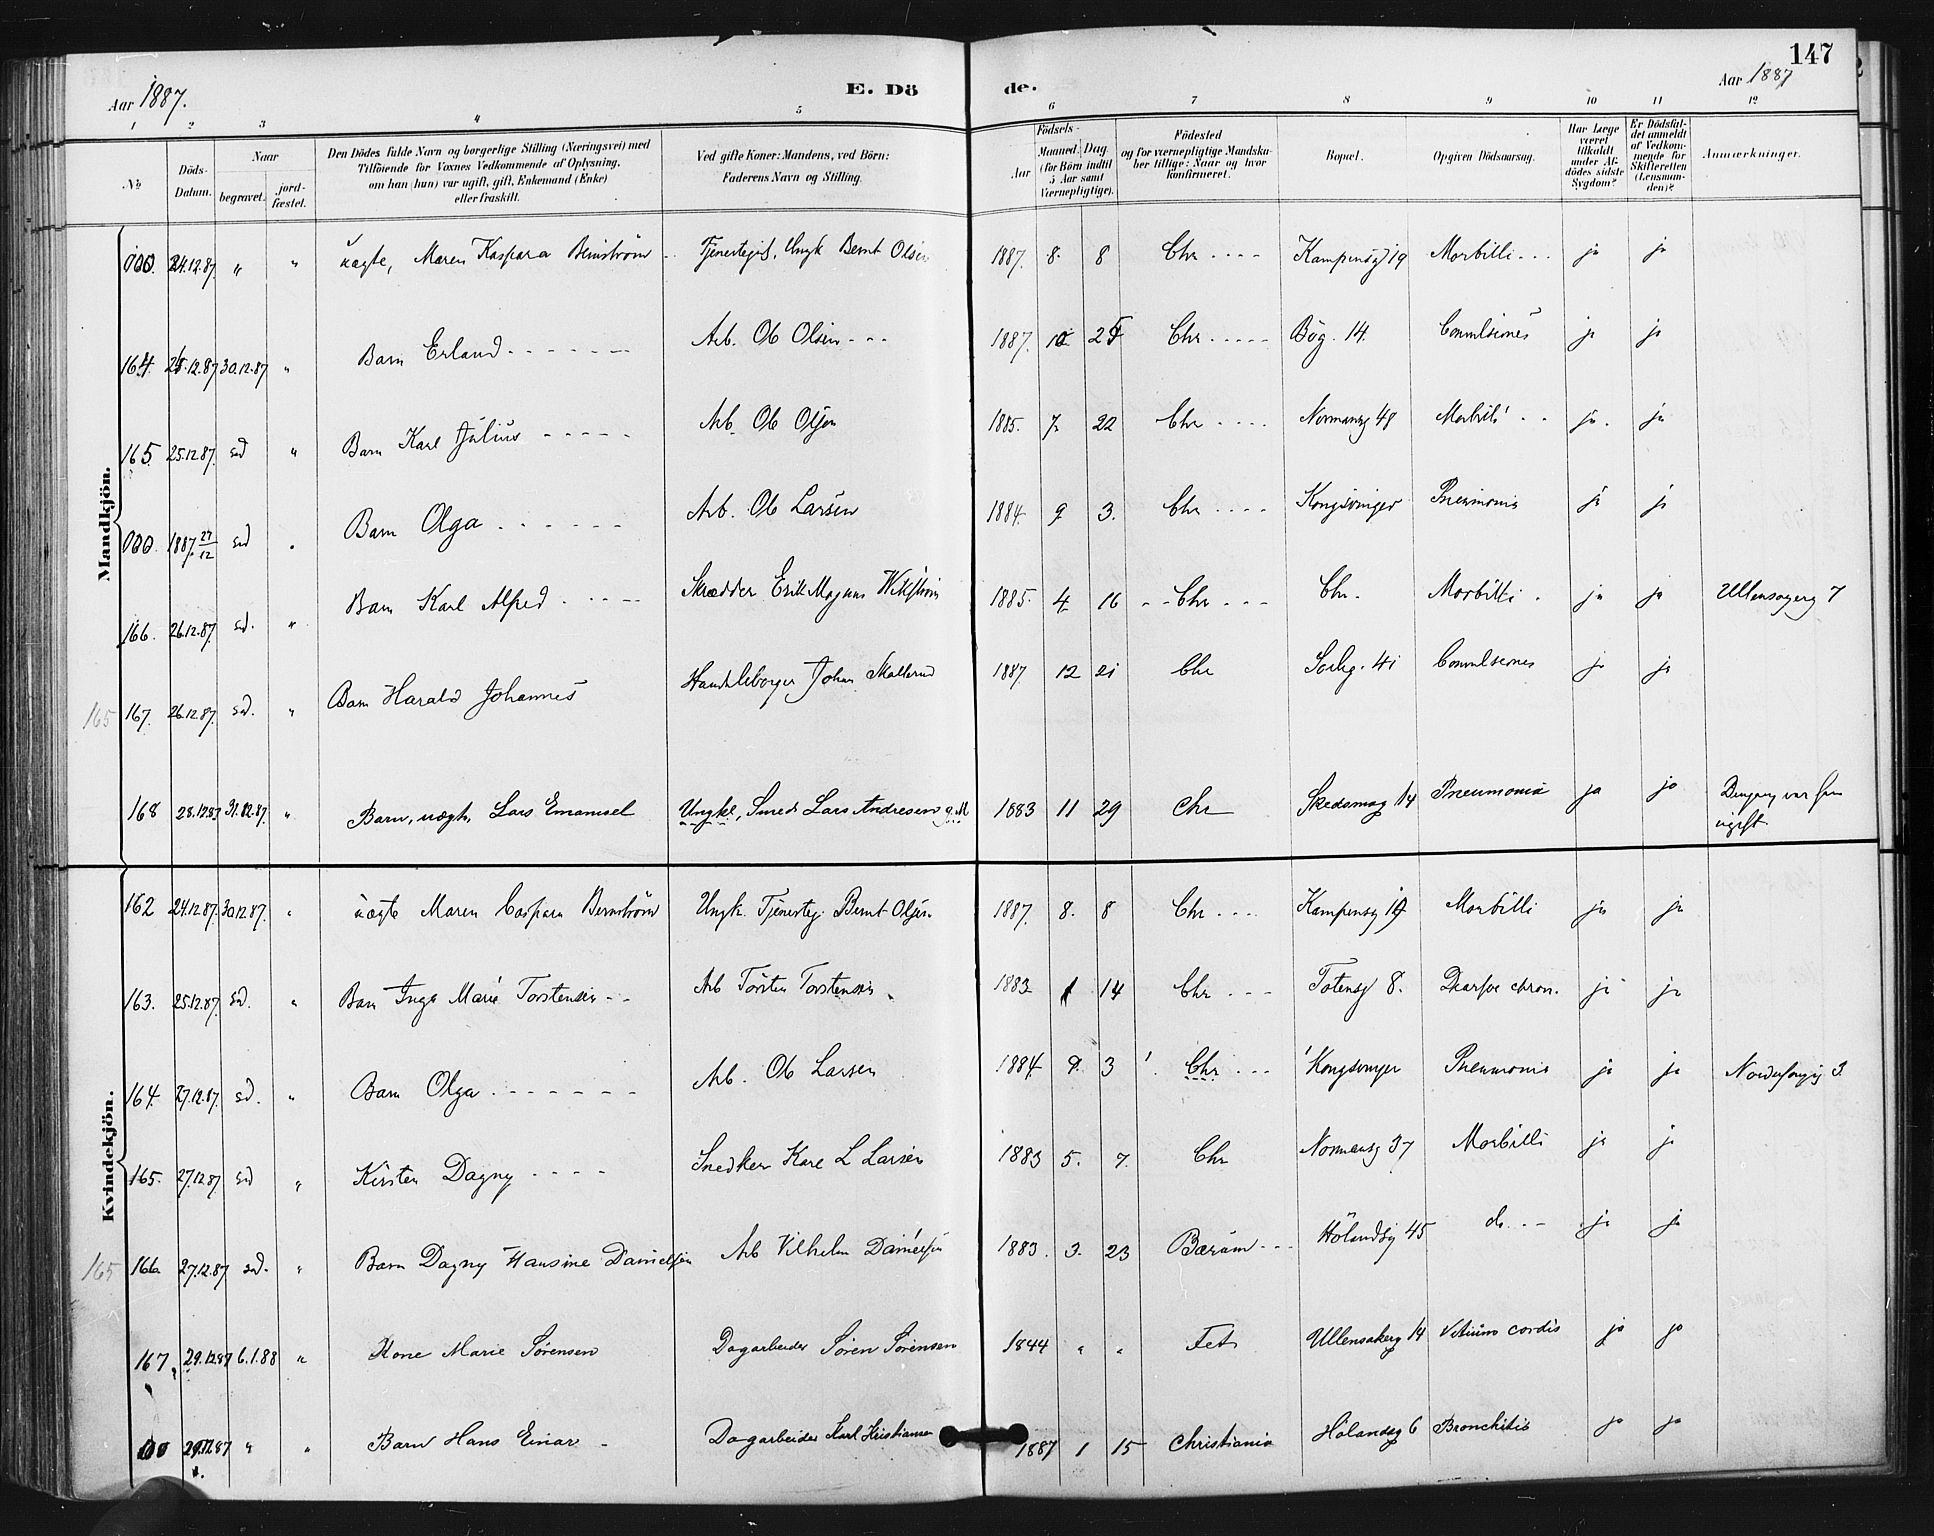 147
Aar 1887. E. Dö de. Aar 1887
1 2 3 4 5 6 7 8 9 10 11 12
No
Döds-Datum.
Naar
begravet.
jord-fæstet.
Den Dödes fulde Navn og borgerlige Stilling (Næringsvei) med
Tilföiende for Voxnes Vedkommende af Oplysning,
om han (hun) var ugift, gift, Enkemand (Enke)
eller fraskilt.
Ved gifte Koner: Mandens, ved Börn:
Faderens Navn og Stilling.
Födsels-
Aar
Maaned. Dag
(for Börn indtil
5 Aar samt
Værnepligtige).
Födested
og for værnepligtige Mandska-
ber tillige: Naar og hvor
konfirmeret.
Bopæl.
Opgiven Dödsaarsag.
Har Læge
været
tilkaldt
under Af-
dödes sidste
Sygdom?
Er Dödsfal-
det anmeldt
af Vedkom-
mende for
Skifteretten
(Lensman-
den)?
Anmærkninger.
Mandkjön.
000. 24.12.87. " " uægte, Maren Kaspara Bernström Tjenestegut, Ungk Bernt Olsen 1887. 8. 8 Chr Kampensg 19 Morbilli ja ja
164. 25.12.87 30.12.87 " Barn Erland Arb. Ole Olsen 1887. 10 25 Chr Bög. 14. Convulsiones ja ja
165. 25.12.87. sd " Barn Karl Julius Arb. Ole Olsen 1885. 7. 22 Chr Normansg 48 Morbili ja. ja
000. 1887. 27/12 sd " Barn Olga Arb. Ole Larsen 1884. 9 3. Chr Kongsvinger Pneumonia ja ja
166. 26.12.87. sd. " Barn Karl Alfred Skrædder Erik Magnus Wikström 1885. 4. 16 Chr Chr. Morbilli. ja ja Ullensagerg 7
165 167. 26.12.87. sd. " Barn Harald Johannes Handelsborger Johan Skallerud 1887 12 21 Chr Sorlig. 41 Convulsiones ja ja
168 28.12.87 31.12.87. " Barn, uægte, Lars Emanuel Ungkl, Smed Lars Andresen g. M 1883 11 29 Chr Skedsmog 14 Pneumonia ja ja Dengang var han
ugift.
Kvindekjön.
162 24.12.87. 30.12.87. " uægte Maren Caspara Bernström Ungk. Tjenesteg. Bernt Olsen 1887. 8. 8 Chr Kampensg 19 Morbilli ja ja
163. 25.12.87. sd. " Barn Inga Marie Torstensen Arb Torsten Torstensen 1883 1 14 Chr Totensg 8. chron. ja ja
164. 27.12.87. sd. " Barn Olga Arb. Ole Larsen 1884 9. 3 Chr Kongsvinger Pneumonia ja ja 3.
165. 27.12.87 sd " Kirsten Dagny Snedker Karl L Larsen 1883 5. 7. Chr Normansg 37 Morbilli ja ja
165 166 27.12.87 sd. " Barn Dagny Hansine Danielsen Arb Vilhelm Danielsen 1883. 3. 23 Bærum Hölandsg 45 do. ja ja
167. 29.12.87 6.1.88 " Kone Marie Sørensen Dagarbeider Søren Sørensen 1844 " " Fet Ullensakerg 14 Vitium cordis ja ja
000 29.12.87 " " Barn Hans Einar Dagarbeider Karl Kristiansen 1887 1 15 Christiania Hölandsg 6 Bronchitis ja ja